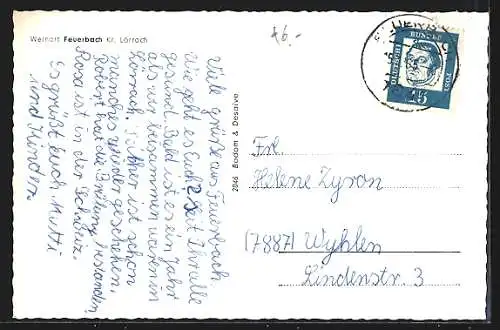 Weinort Feuerbach Kr. Lörrach
46.-
DEUTSCHE
BUNDESPOST
15
2046 Badom & Desaive
Viele grüße aus Feuerbach
Wie geht es Euch? Seit Ihr alle
gesund. Bald ist es ein Jahr
als wir beisammen waren in
Lörrach. Seither ist schon
manches wieder geschehen.
Robert hat die Prüfung bestanden
Rosa ist in der Schweiz.
Es grüßt Euch Mutti
und Kinder.
Frl.
Helene Zyron
(7887) Wyhlen
Lindenstr. 3